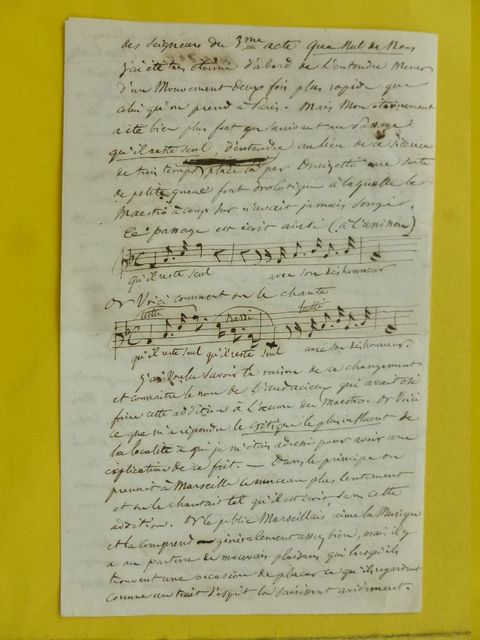 des Seigneurs du 3me acte Que Nul de Nous
j'ai été très étonné d'abord de l'entendre Mener
d'un Mouvement deux fois plus rapide que
celui qu'on prend à Paris. Mais Mon étonnement
a été bien plus fort en arrivant au Passage
qu'il reste seul, d'entendre au lieu de ce Silence
de trois temps placé là par Donizetti une sorte
de petite queue fort drolatique à laquelle le
Maestro à coup sûr n'avait jamais songé.
Ce passage est écrit ainsi (à l'unisson)
qu'il reste seul avec son déshonneur
Or Voici comment on le chante
tutti tutti
qu'il reste seul qu'il reste seul avec son déshonneur.
J'ai voulu savoir la raison de ce changement
et connaitre le nom de l'audacieux qui avait osé
faire cette addition à l'œuvre du maestro. Or Voici
ce que m'a répondu le critique le plus influent de
la localité à qui je m'étais adressé pour avoir une
explication de ce fait. — Dans le principe on
prenait à Marseille ce morceau plus lentement
et on le chantait tel qu'il est écrit, sans cette
addition. Or le public Marseillais, aime la Musique
et la comprend — généralement assez bien, mais il y
a au parterre de mauvais plaisans qui lorsqu'ils
trouvent une occasion de placer ce qu'ils regardent
comme un trait d'esprit la saisissent avidement.